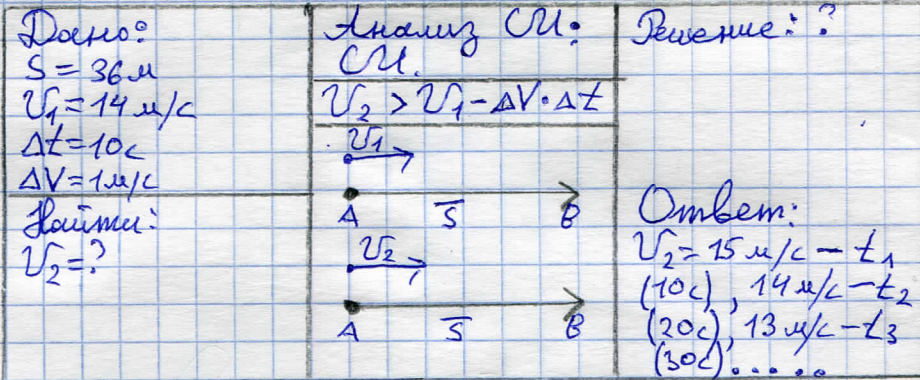 Дано:
S = 36 м
V₁ = 14 м/с
Δt = 10с
ΔV = 1м/с
Найти:
V₂ = ?
Анализ СИ:
СИ.
V₂ > V₁ - ΔV · Δt
V₁
A S̅ B
V₂
A S̅ B
Решение: ?
Ответ:
V₂ = 15 м/с – t₁
(10с), 14 м/с – t₂
(20с), 13 м/с – t₃
(30с).....